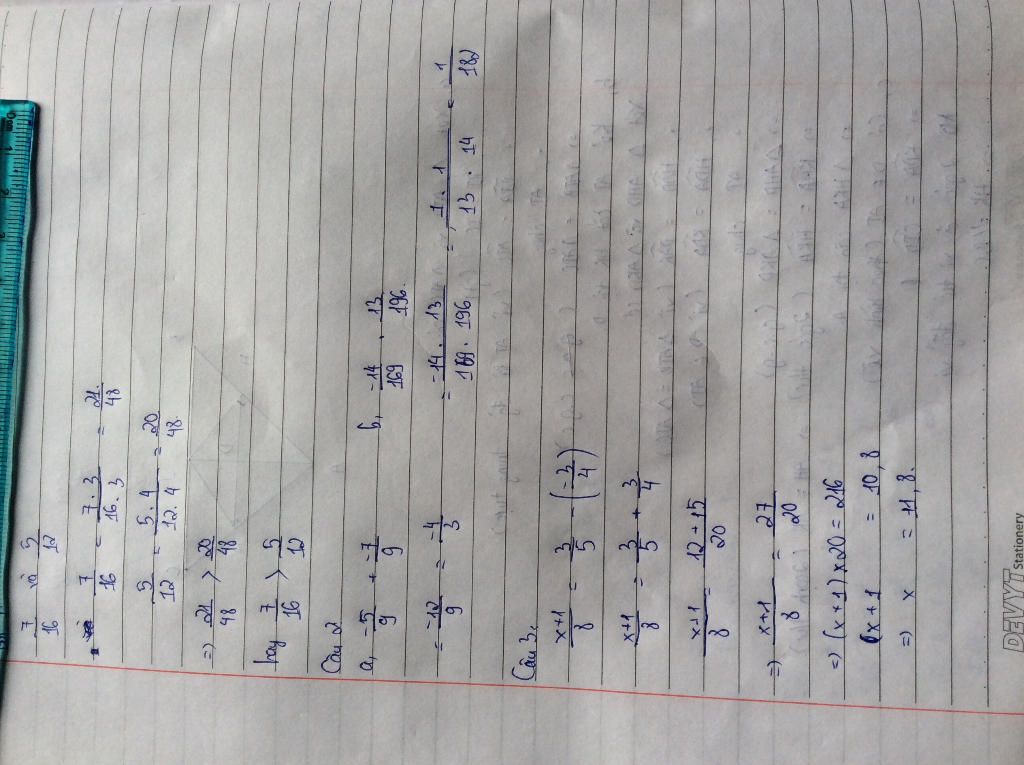 7/16 và 5/12
7/16 = 7 . 3/16 . 3 = 21/48
5/12 = 5 . 4/12 . 4 = 20/48
=) 21/48 > 20/48
hay 7/16 > 5/12
Câu 2
a, -5/9 + -7/9
= -12/9 = -4/3
b, -14/169 . 13/196
= -14 . 13/169 . 196 = -1 . 1/13 . 14 = -1/182
Câu 3,
x+1/8 = 3/5 - (-3/4)
x+1/8 = 3/5 + 3/4
x+1/8 = 12+15/20
=) x+1/8 = 27/20
=) (x+1) x 20 = 216
(x+1 = 10,8
=) x = 11,8.
DEVYT Stationery
0cm 1 2